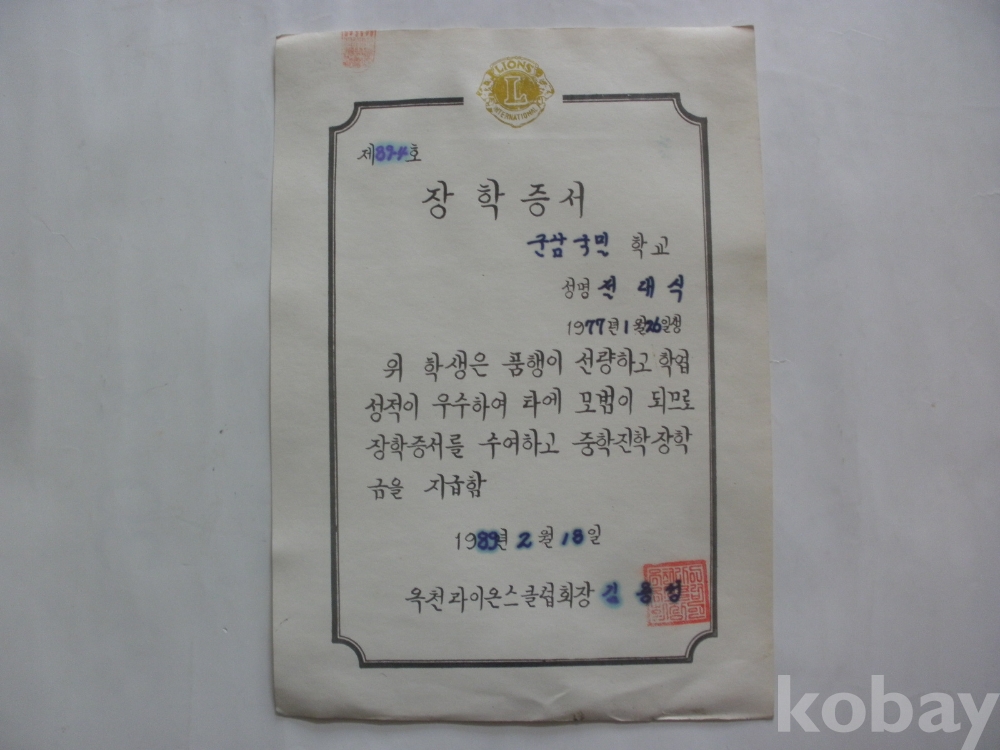 LIONS
L
INTERNATIONAL
제89-4호
장학증서
군남국민 학교
성명 전대식
1977년 1월 26일생
위 학생은 품행이 선량하고 학업
성적이 우수하여 타에 모범이 되므로
장학증서를 수여하고 중학진학장학
금을 지급함
1989년 2월 18일
옥천라이온스클럽회장 김용
kobay